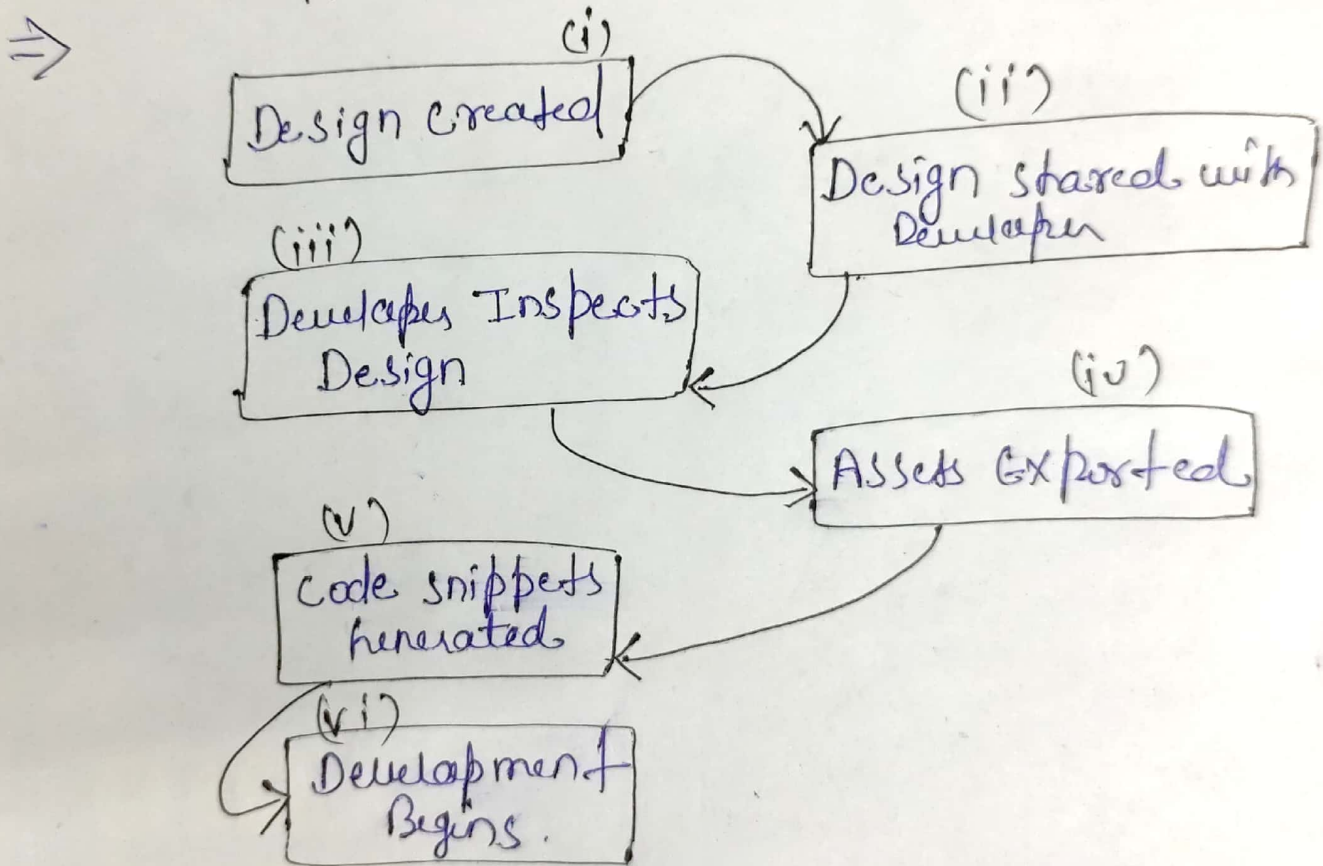 ⇒
(i)
Design created
(ii)
Design shared with
Developer
(iii)
Developer Inspects
Design
(iv)
Assets Exported
(v)
code snippets
Generated
(vi)
Development
Begins.